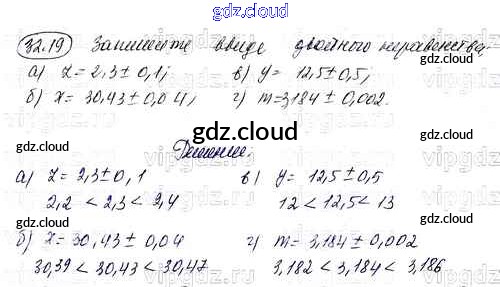 gdz.cloud
32.19 Запишите ввиде двойного неравенства:
а) z = 2,3 ± 0,1; в) y = 12,5 ± 0,5;
б) x = 30,43 ± 0,04; г) m = 3,184 ± 0,002.
gdz.cloud
Решение.
а) z = 2,3 ± 0,1 в) y = 12,5 ± 0,5
2,2 < 2,3 < 2,4 12 < 12,5 < 13
б) x = 30,43 ± 0,04 г) m = 3,184 ± 0,002
30,39 < 30,43 < 30,47 3,182 < 3,184 < 3,186
gdz.cloud